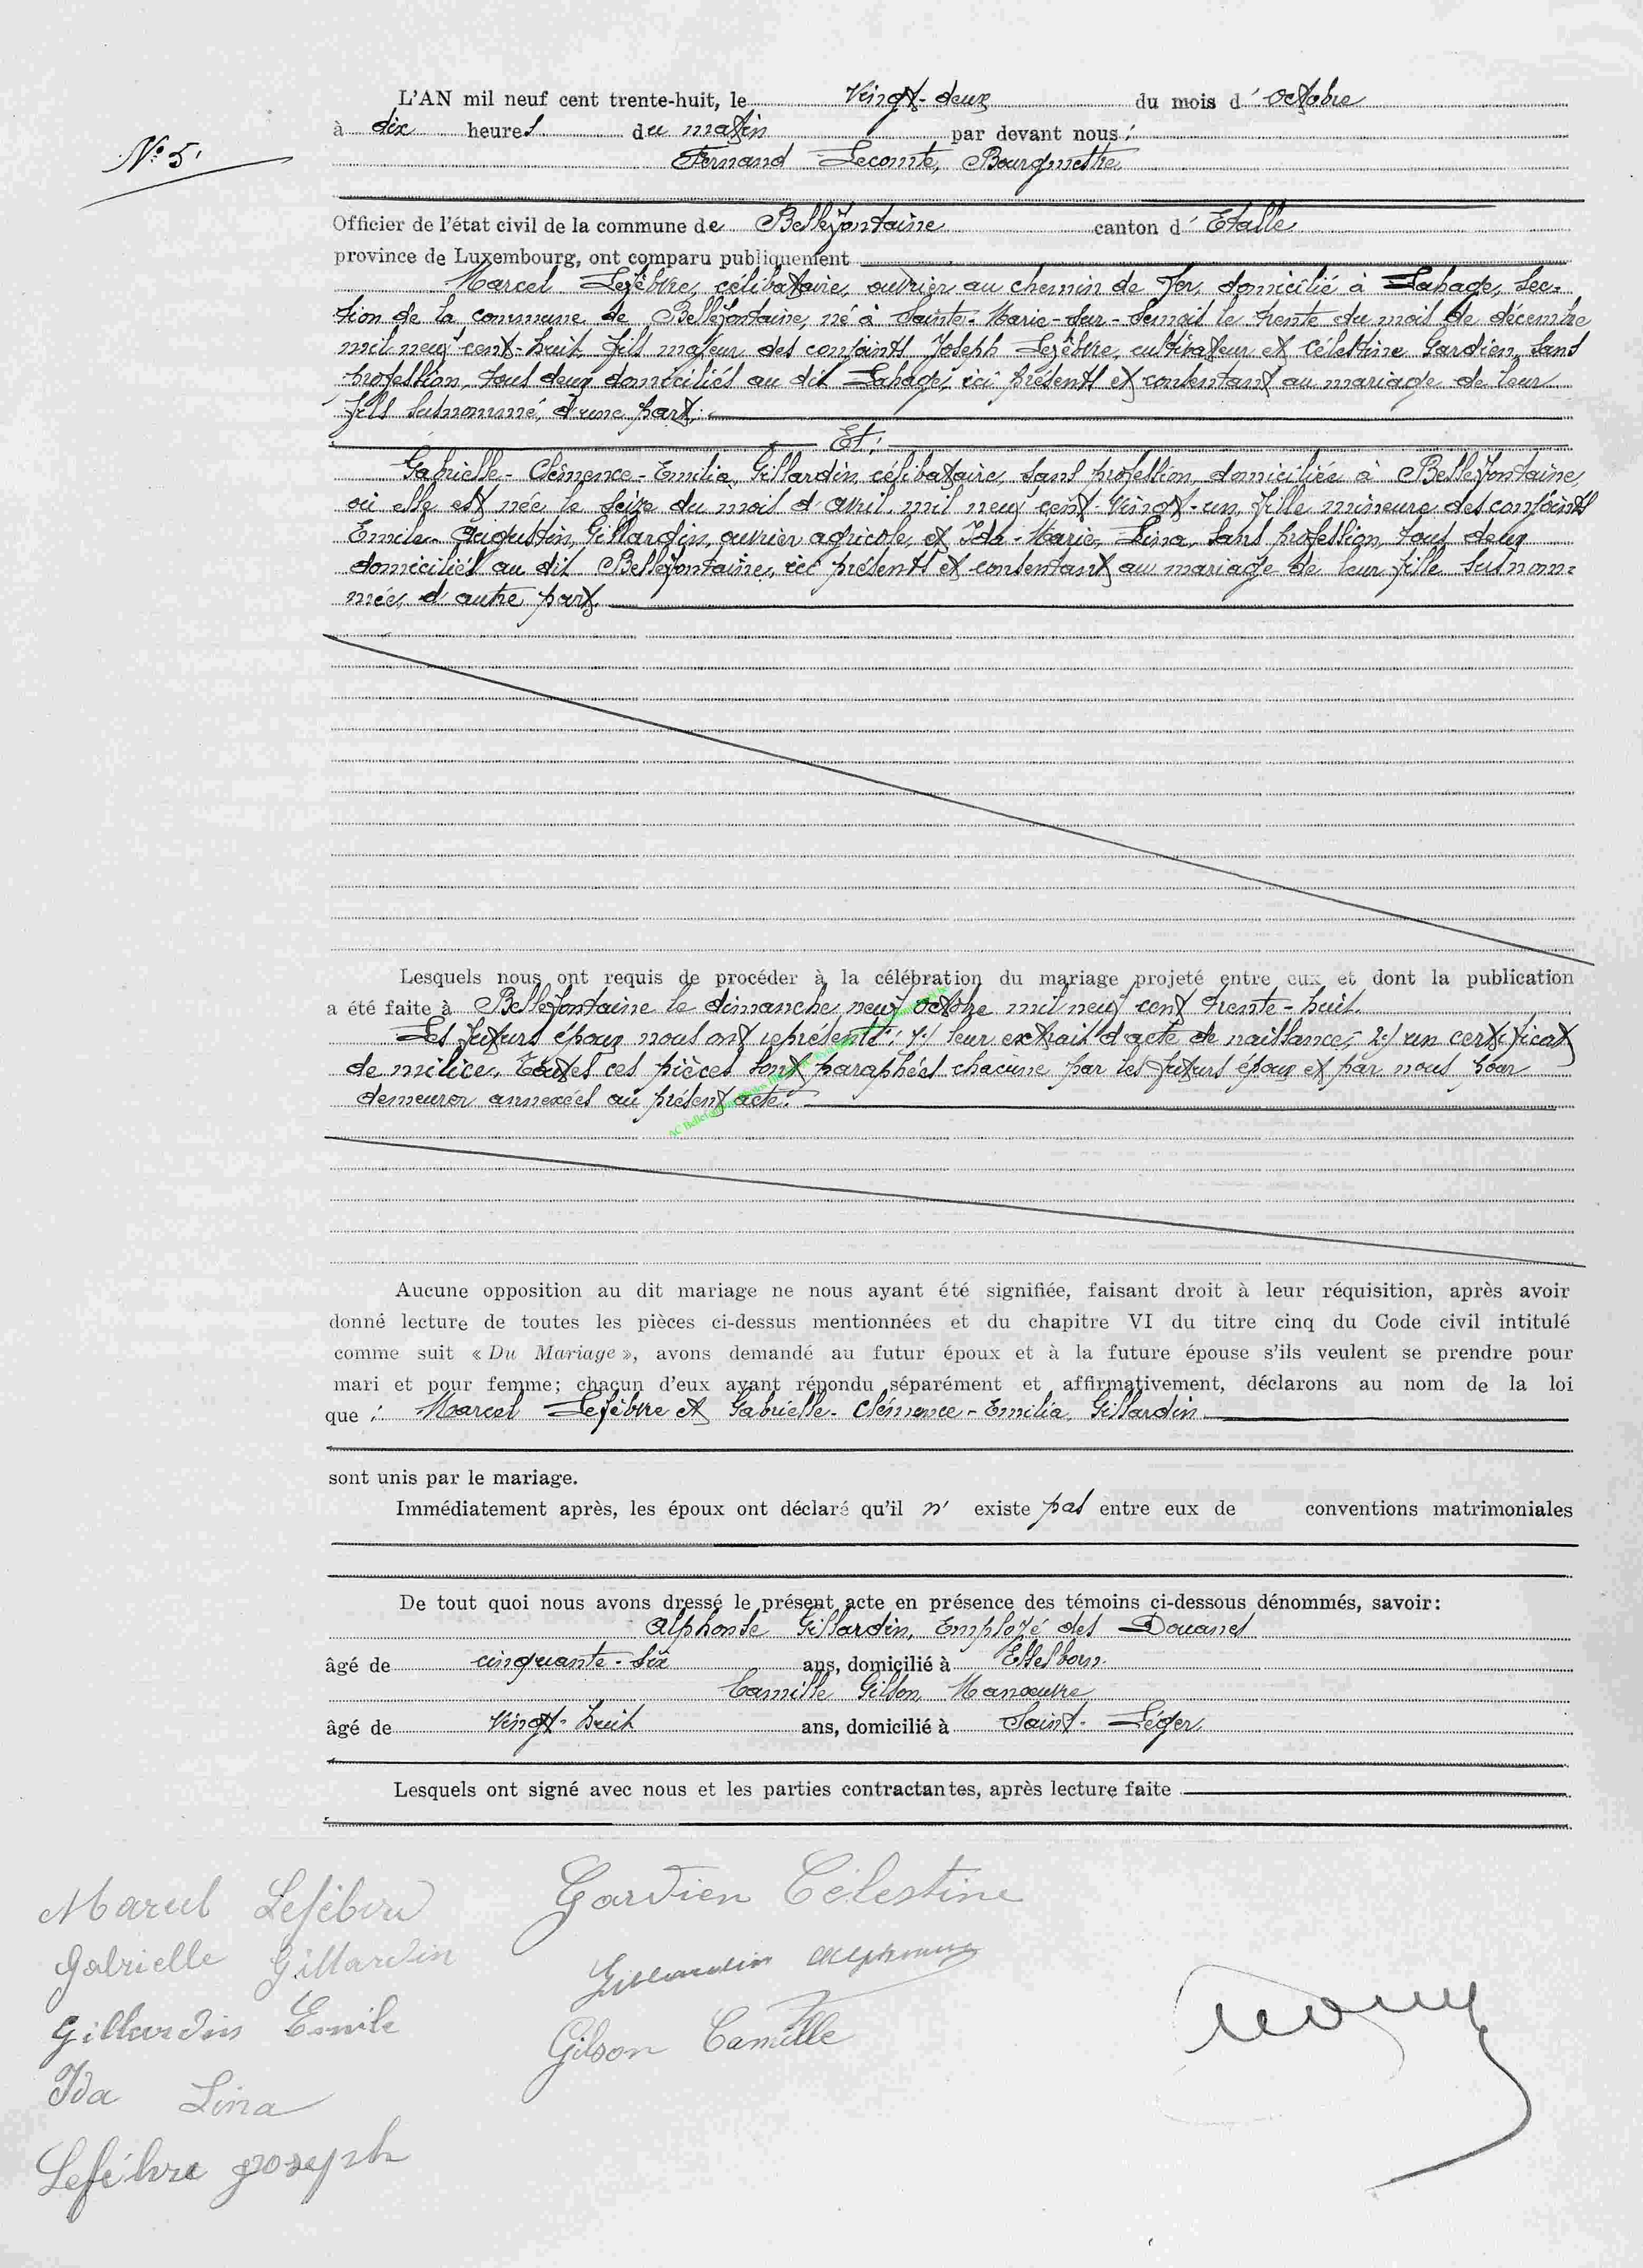 L'AN mil neuf cent trente-huit, le Vingt-deux du mois d'octobre
à dix heures du matin par devant nous :
N° 5.
Fernand Lecomte, Bourgmestre
Officier de l'état civil de la commune de Bellefontaine canton d'Etalle
province de Luxembourg, ont comparu publiquement
Marcel Lefèbvre, célibataire, ouvrier au chemin de fer, domicilié à Lahage, sec-
tion de la commune de Bellefontaine, né à Sainte-Marie-sur-Semois le trente du mois de décembre
mil neuf cent-huit, fils majeur des conjoints Joseph Lefèbvre, cultivateur et Célestine Gardien, sans
profession, tous deux domiciliés au dit Lahage, ici présents et consentant au mariage de leur
fils susnommé, d'une part;
Et :
Gabrielle-Clémence-Emilia, Gillardin, célibataire, sans profession, domiciliée à Bellefontaine,
où elle est née le seize du mois d'avril mil neuf cent-vingt-un, fille mineure des conjoints
Emile-Augustin, Gillardin, ouvrier agricole, et Ida-Marie, Lina, sans profession, tous deux
domiciliés au dit Bellefontaine, ici présents et consentant au mariage de leur fille susnom-
mée, d'autre part.
Lesquels nous ont requis de procéder à la célébration du mariage projeté entre eux et dont la publication
a été faite à Bellefontaine le dimanche neuf octobre mil neuf cent trente-huit.
Les futurs époux nous ont représenté : 1°/ leur extrait d'acte de naissance; 2°/ un certificat
de milice. Toutes ces pièces sont paraphées chacune par les futurs époux et par nous pour
demeurer annexées au présent acte.
AC Bellefontaine
Aucune opposition au dit mariage ne nous ayant été signifiée, faisant droit à leur réquisition, après avoir
donné lecture de toutes les pièces ci-dessus mentionnées et du chapitre VI du titre cinq du Code civil intitulé
comme suit « Du Mariage », avons demandé au futur époux et à la future épouse s'ils veulent se prendre pour
mari et pour femme; chacun d'eux ayant répondu séparément et affirmativement, déclarons au nom de la loi
que : Marcel Lefèbvre et Gabrielle-Clémence-Emilia, Gillardin
sont unis par le mariage.
Immédiatement après, les époux ont déclaré qu'il n' existe pas entre eux de conventions matrimoniales
De tout quoi nous avons dressé le présent acte en présence des témoins ci-dessous dénommés, savoir:
Alphonse Gillardin, Employé des Douanes
âgé de cinquante-six ans, domicilié à
Camille Gilson, Manoeuvre
âgé de Vingt-huit ans, domicilié à Saint-Léger
Lesquels ont signé avec nous et les parties contractantes, après lecture faite
Marcel Lefèbvre
Gardien Célestine
Gabrielle Gillardin
Gillardin Alphonse
Gillardin Emile
Gilson Camille
Ida Lina
Lefèbvre Joseph